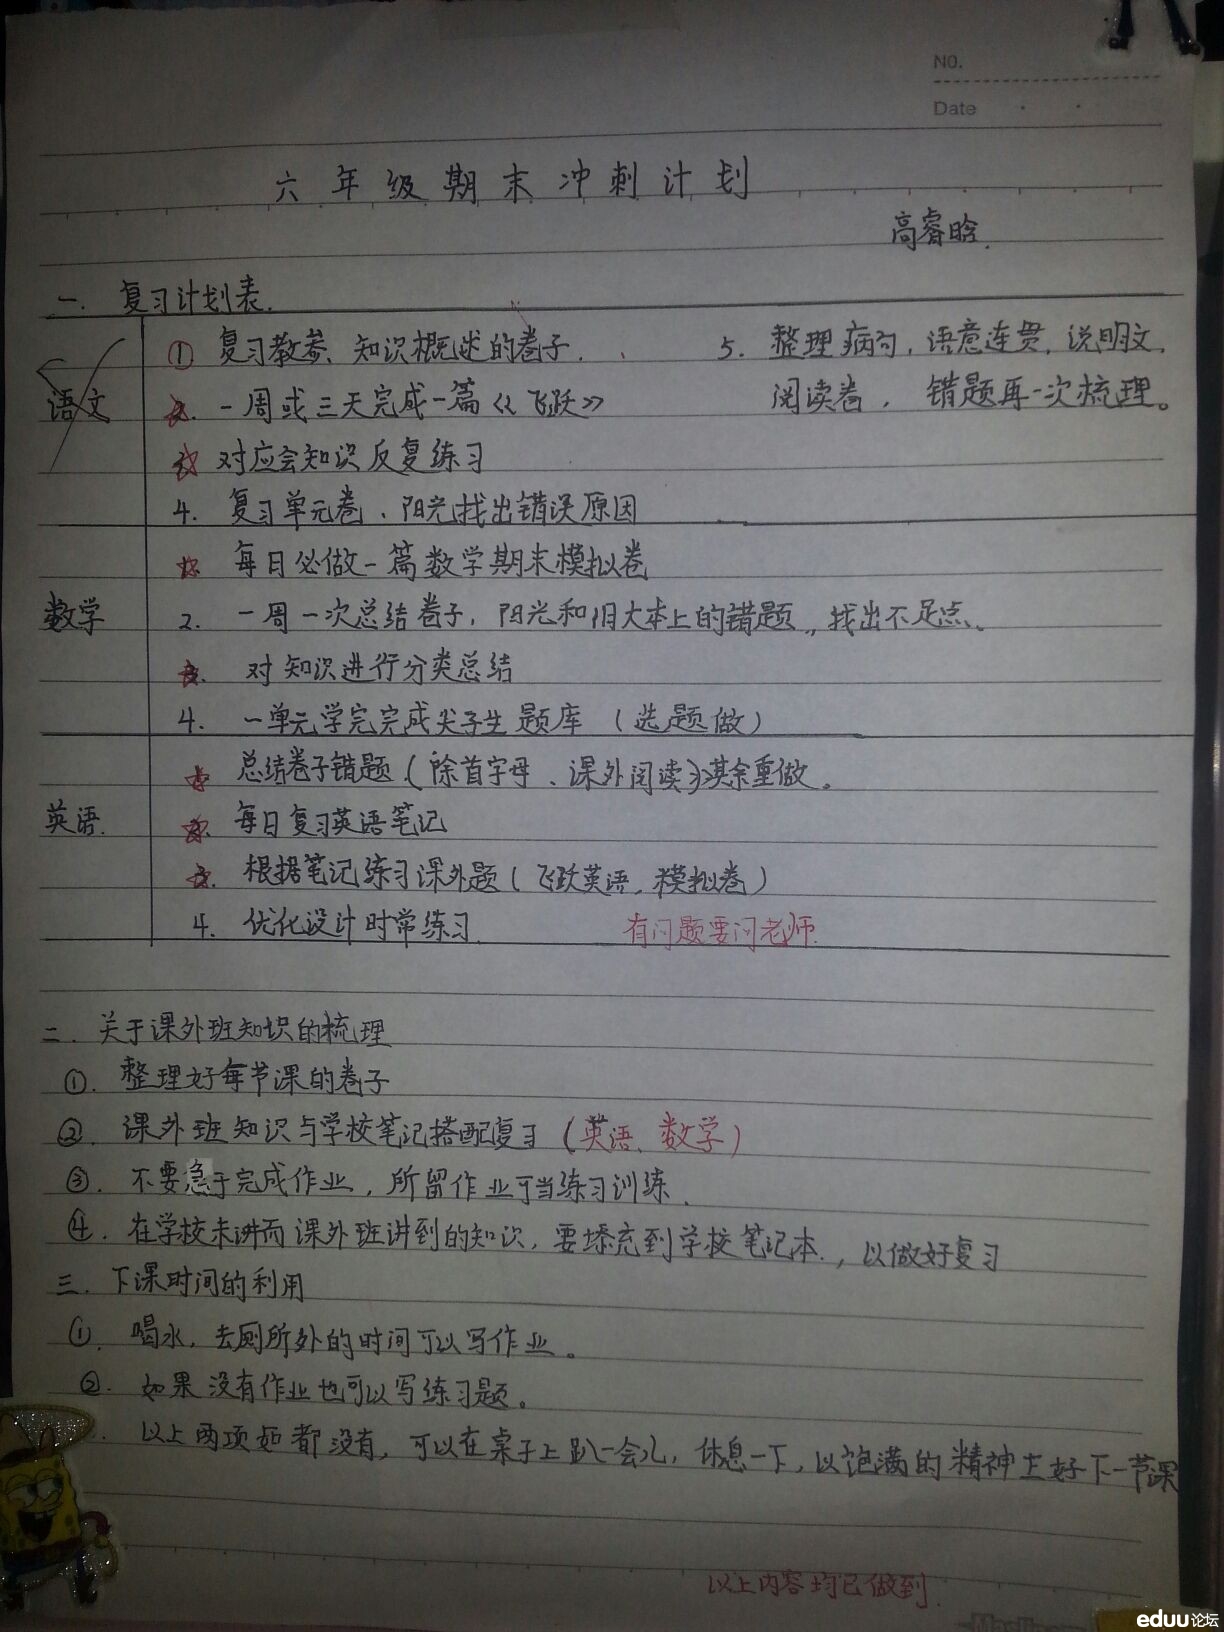 NO.
Date
六年级期末冲刺计划
高睿晗.
一. 复习计划表.
语文
① 复习教参、知识概述的卷子.
2. 一周或三天完成一篇《飞跃》
3. 对应会知识反复练习
4. 复习单元卷、阳光找出错误原因
5. 整理病句, 语意连贯, 说明文,
阅读卷, 错题再一次梳理。
数学
1. 每日必做一篇数学期末模拟卷
2. 一周一次总结卷子, 阳光和旧大本上的错题, 找出不足点、
3. 对知识进行分类总结
4. 一单元学完完成尖子生题库 (选题做)
英语.
1. 总结卷子错题 (除首字母、课外阅读) 其余重做。
2. 每日复习英语笔记
3. 根据笔记练习课外题 (飞跃英语, 模拟卷)
4. 优化设计时常练习.
有问题要问老师.
二. 关于课外班知识的梳理
①. 整理好每节课的卷子
②. 课外班知识与学校笔记搭配复习 (英语、数学)
③. 不要急于完成作业, 所留作业可当练习训练.
④. 在学校未讲而课外班讲到的知识, 要填充到学校笔记本., 以做好复习
三. 下课时间的利用
①. 喝水, 去厕所外的时间可以写作业。
②. 如果没有作业也可以写练习题。
以上两项如都没有, 可以在桌子上趴一会儿, 休息一下, 以饱满的精神上好下一节课
以上内容均已做到.
eduu论坛